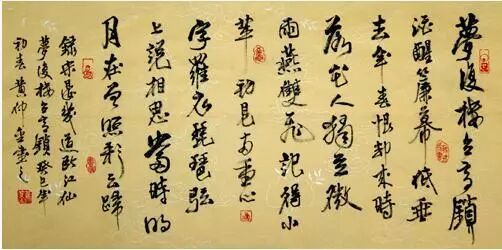 夢後楼台高鎖
酒醒簾幕低垂
去年春恨却来時
落花人獨立微
雨燕雙飛記得小
苹初見两重心
字羅衣琵琶弦
上説相思當時明
月在曾照彩云歸
録宋晏幾道臨江仙
夢後楼台高鎖癸巳年
初春黄仲金書